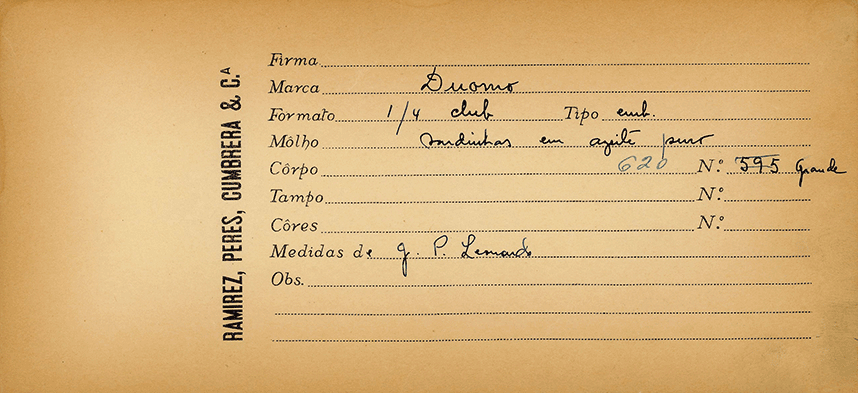 RAMIREZ, PERES, CUMBRERA & C.A
Firma
Marca Duomo
Formato 1/4 club Tipo emb.
Môlho sardinhas em azeite puro
Côrpo 620 N.º 595 Grande
Tampo N.º
Côres N.º
Medidas de J. P. Leonardo
Obs.